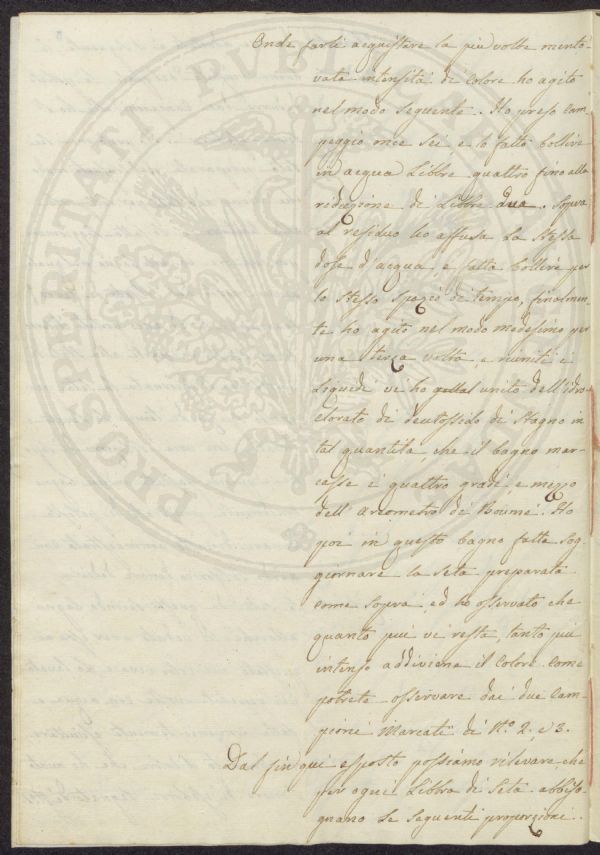 Onde farli acquistare la più volte mento-
vata intensità di colore ho agito
nel modo seguente. Ho preso Cam
peggio once sei e lo fatto bollire
in acqua Libbre quattro fino alla
riduzione di Libbre dua. Sopra
al residuo ho affusa la stessa
dose d'acqua, e fatta bollire per
lo stesso spazio di tempo, finalmen-
te ho agito nel modo medesimo per
una terza volta, e riuniti i
Liquidi vi ho unito dell'idro
clorato di deutossido di Stagno in
tal quantità che il bagno mar-
casse i quattro gradi, e mezzo
dell'Areometro di Boumé. Ho
poi in questo bagno fatta sog-
giornare la Seta preparata
come sopra, ed ho osservato che
quanto più vi resta, tanto più
intenso addiviene il Colore come
potrete osservare dai due Cam-
pioni Marcati di N.o 2. e 3.
Dal fin qui esposto possiamo rilevare che
per ogni Libbra di Seta abbiso-
gnano le seguenti proporzioni.
PROSPERITATI PVBLICAE